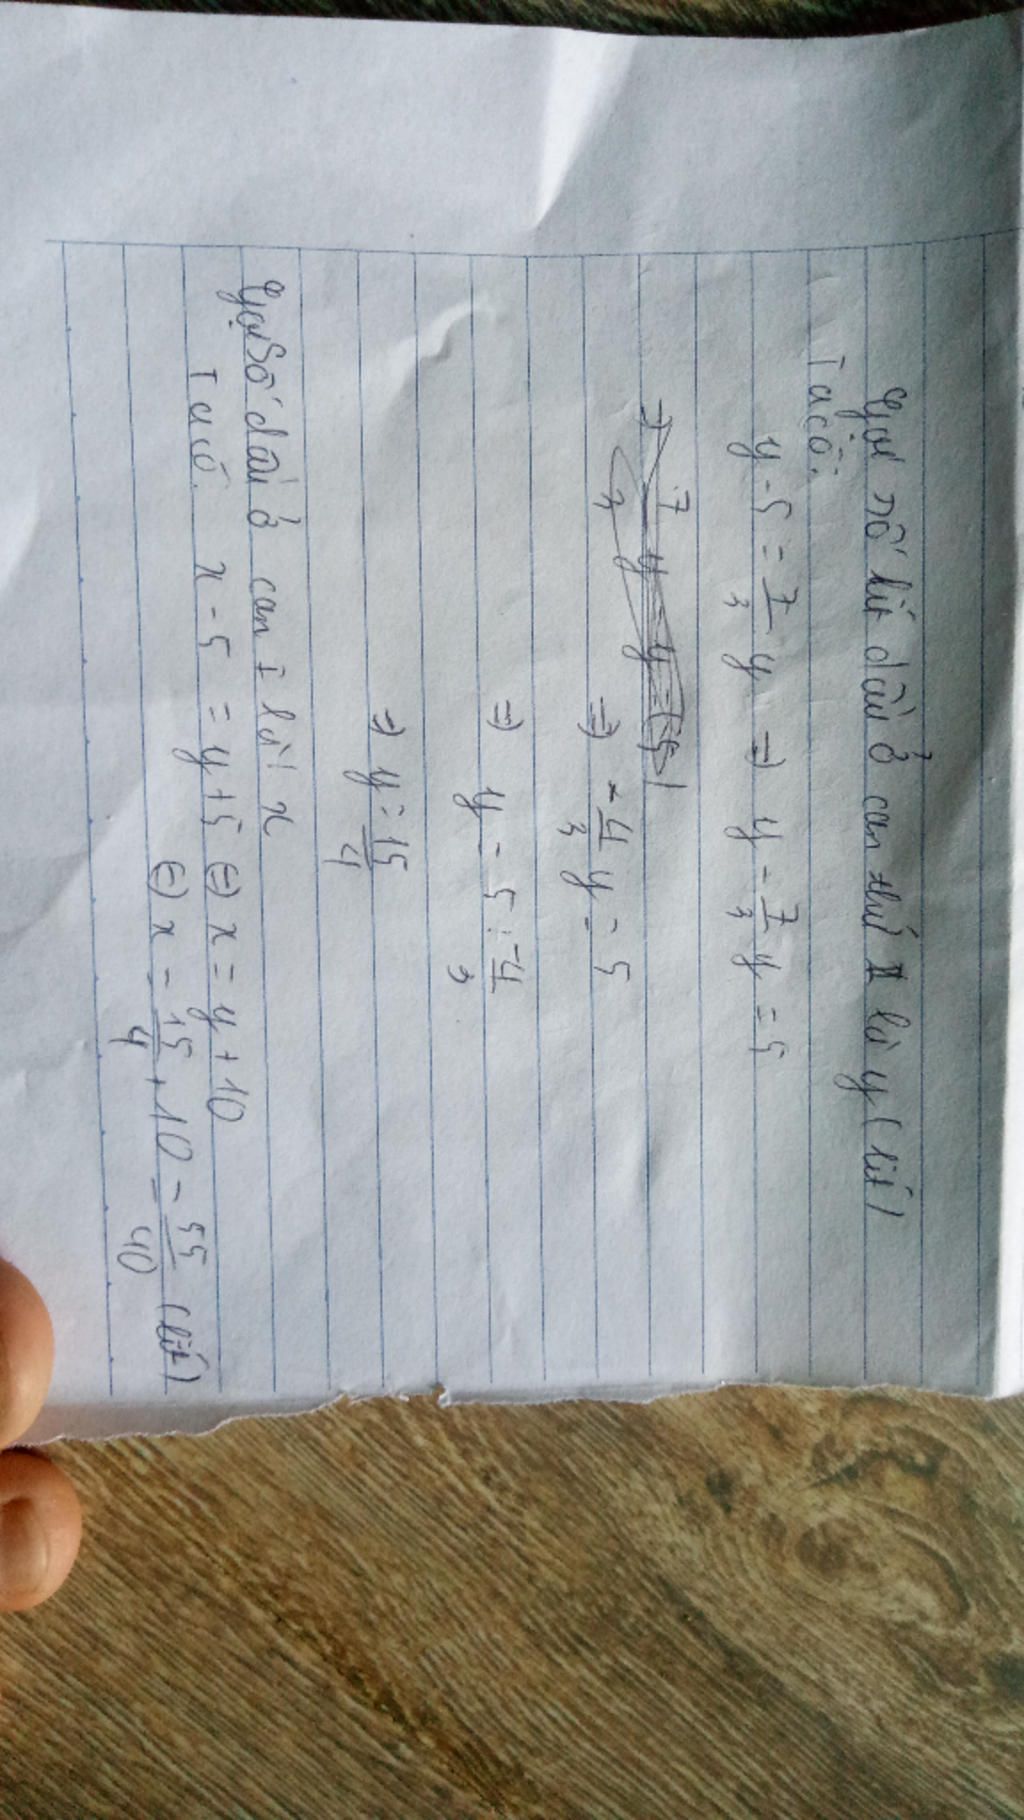 Gọi số lít dầu ở can thứ II là y (lít)
Ta có:
y - 5 = 7/3 y => y - 7/3 y = 5
=> -4/3 y = 5
=> y = 5 : -4/3
=> y = 15/4
Gọi số dầu ở can I là: x
Ta có: x - 5 = y + 5 (=) x = y + 10
(=) x = 15/4 + 10 = 55/40 (lít)